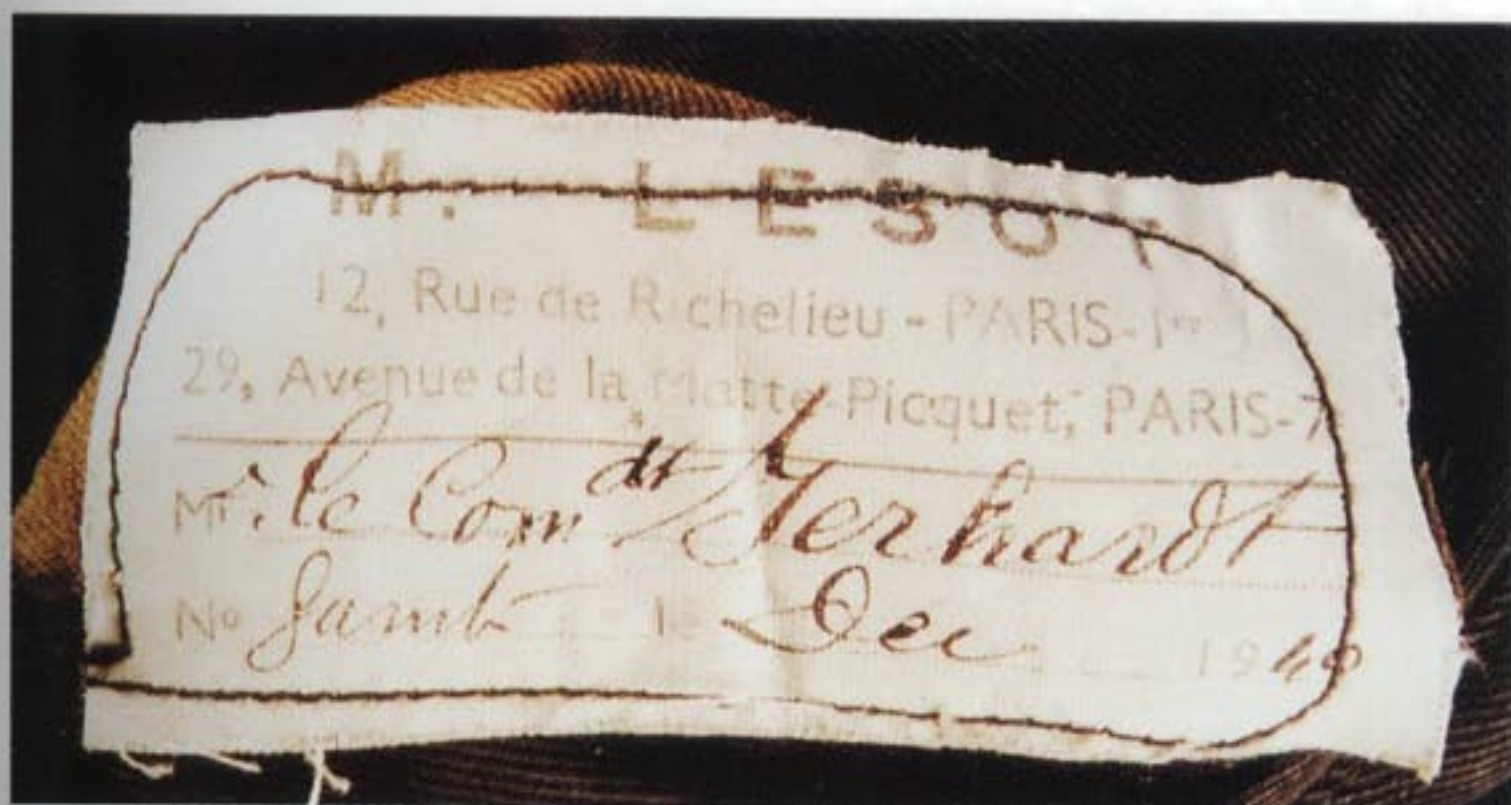 M. LESOT
12, Rue de Richelieu - PARIS-1er
29, Avenue de la Motte-Picquet, PARIS-7
Mr. le Comdt Gerhardt
No Jamb 1 Dec 1940